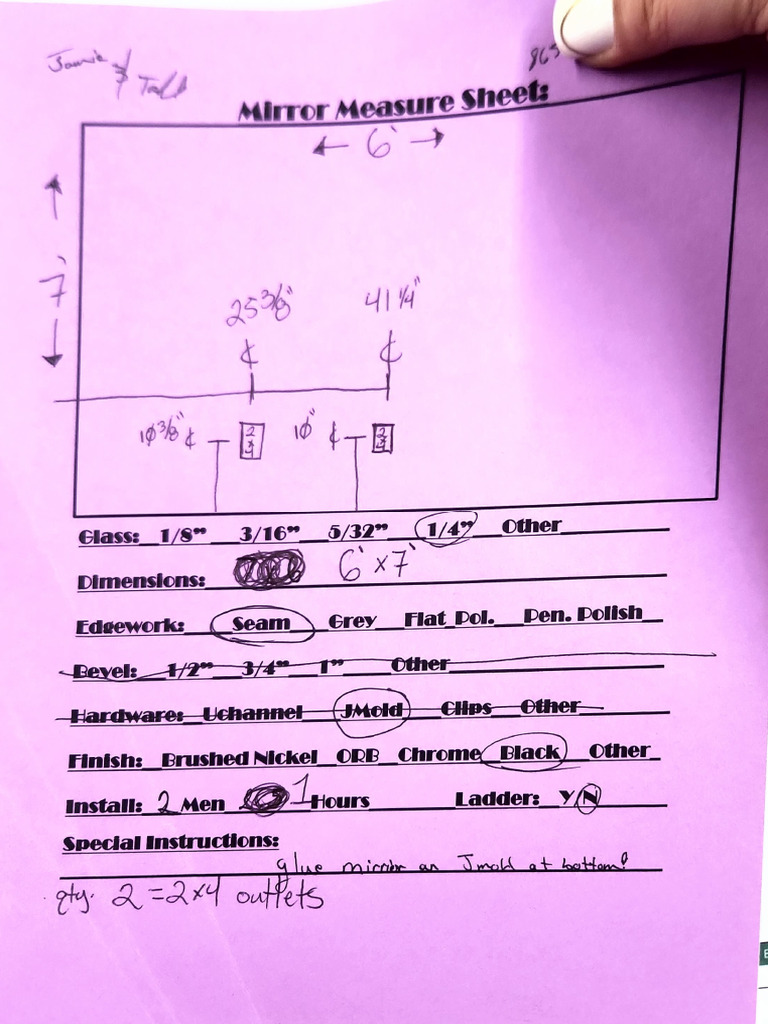 865
Mirror Measure Sheet:
← 6' →
7'
25 3/8" 41 1/4"
℄ ℄
10 3/8" ℄ 2x4 10" ℄ 2x4
Glass: 1/8” 3/16” 5/32” 1/4” Other
Dimensions: 6' x 7'
Edgework: Seam Grey Flat Pol. Pen. Polish
Bevel: 1/2” 3/4” 1” Other
Hardware: Uchannel JMold Clips Other
Finish: Brushed Nickel ORB Chrome Black Other
Install: 2 Men 1 Hours Ladder: Y/N
Special Instructions:
glue mirror on Jmold at bottom!
qty. 2 = 2x4 outlets